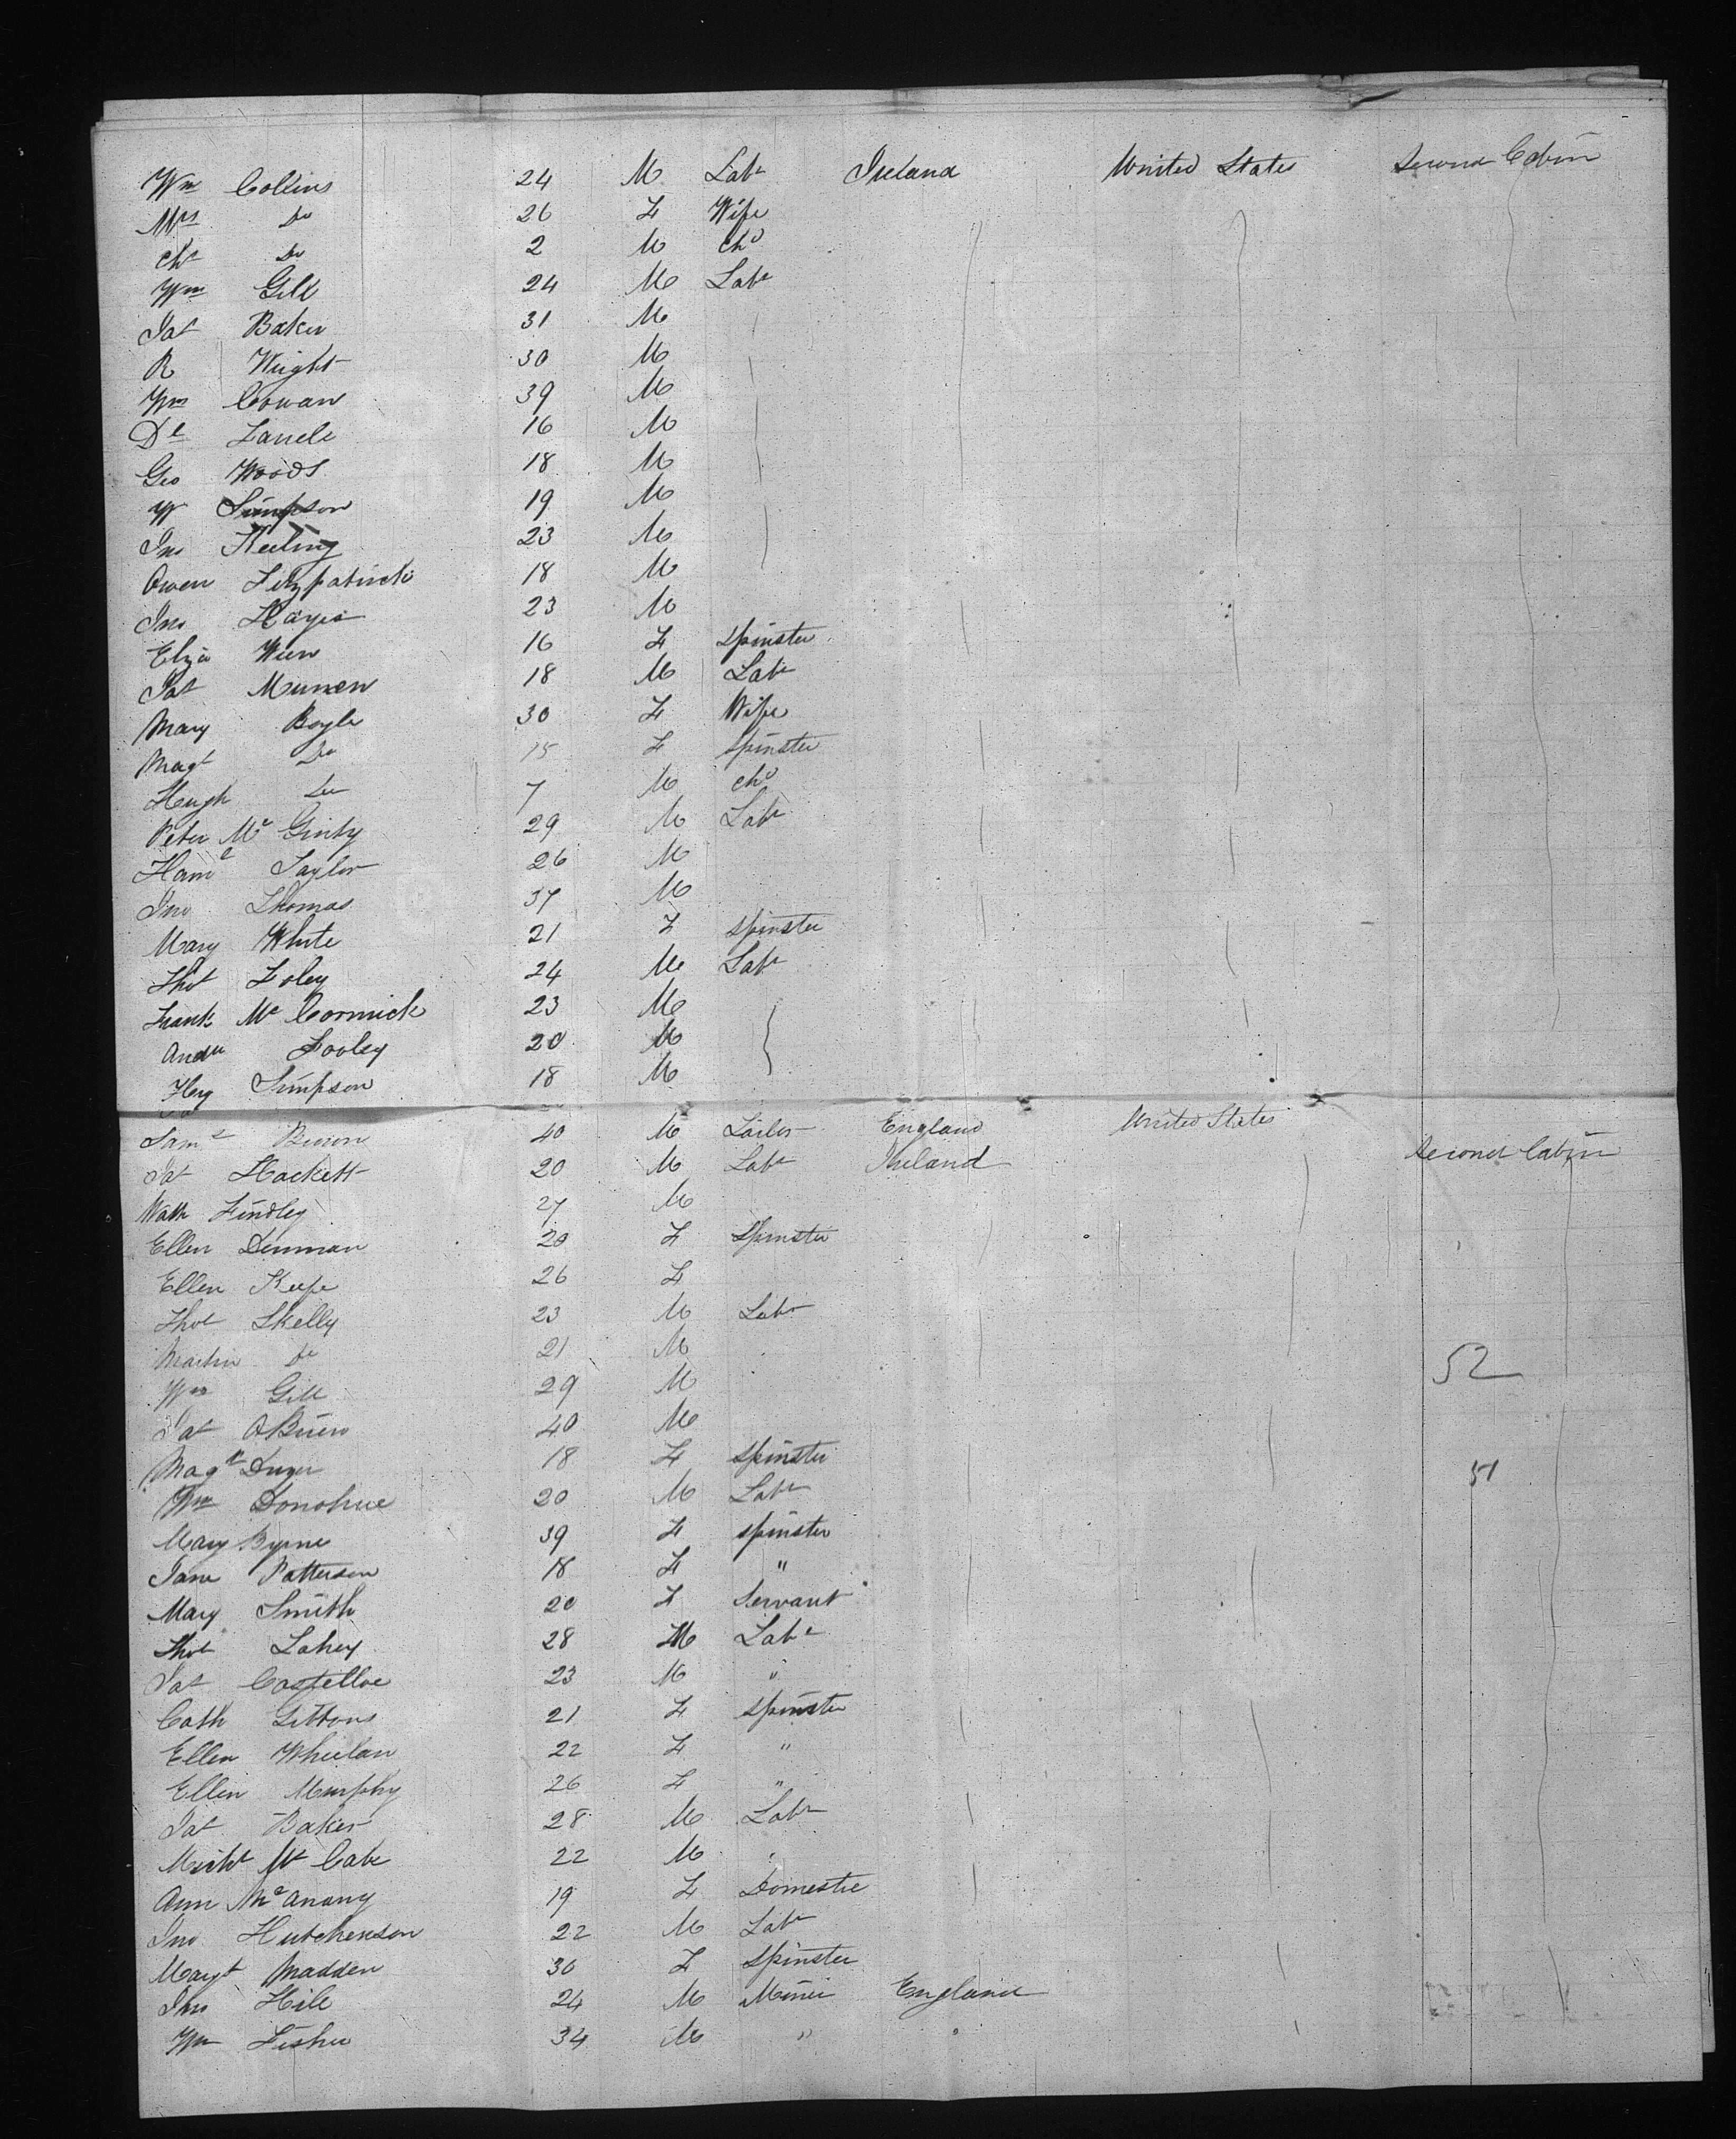 Wm Collins 24 M Labr Ireland United States Second Cabin
Mrs Do 26 F Wife
Chd Do 2 M Chd
Wm Gill 24 M Labr
Pat Baker 31 M
R Wright 30 M
Wm Cowan 39 M
16 M
Geo Woods 18 M
W Simpson 19 M
Jno Keeling 23 M
Owen Fitzpatrick 18 M
Jno Hayes 23 M
Eliza 16 F Spinster
Pat 18 M Labr
Mary Boyle 30 F Wife
Magt Do 15 F Spinster
Hugh Do 7 M Chd
Peter Mc Ginty 29 M Labr
Taylor 26 M
Jno Thomas 37 M
Mary White 21 F Spinster
Thos Foley 24 M Labr
Frank Mc Cormick 23 M
Andw Fooley 20 M
Hy Simpson 18 M
Saml 40 M Tailor England United States
Pat Hackett 20 M Labr Ireland Second Cabin
Findley 27 M
Ellen Denman 20 F Spinster
Ellen Keefe 26 F
Thos Skelly 23 M Labr
Martin Do 21 M
52
Wm Gill 29 M
Pat OBrien 40 M
Magt Dwyer 18 F Spinster
51
Wm Donohue 20 M Labr
Mary Byrne 39 F Spinster
Jane Patterson 18 F "
Mary Smith 20 F Servant
Thos Lahey 28 M Labr
Pat Costelloe 23 M "
Cath Gittons 21 F Spinster
Ellen Wheelan 22 F "
Ellen Murphy 26 F "
Pat Baker 28 M Labr
Michl Mc Cabe 22 M "
Ann Mc Anany 19 F Domestic
Jno Hutchenson 22 M Labr
Margt Madden 30 F Spinster
Jno Hill 24 M Miner England
Wm Fisher 34 M " "